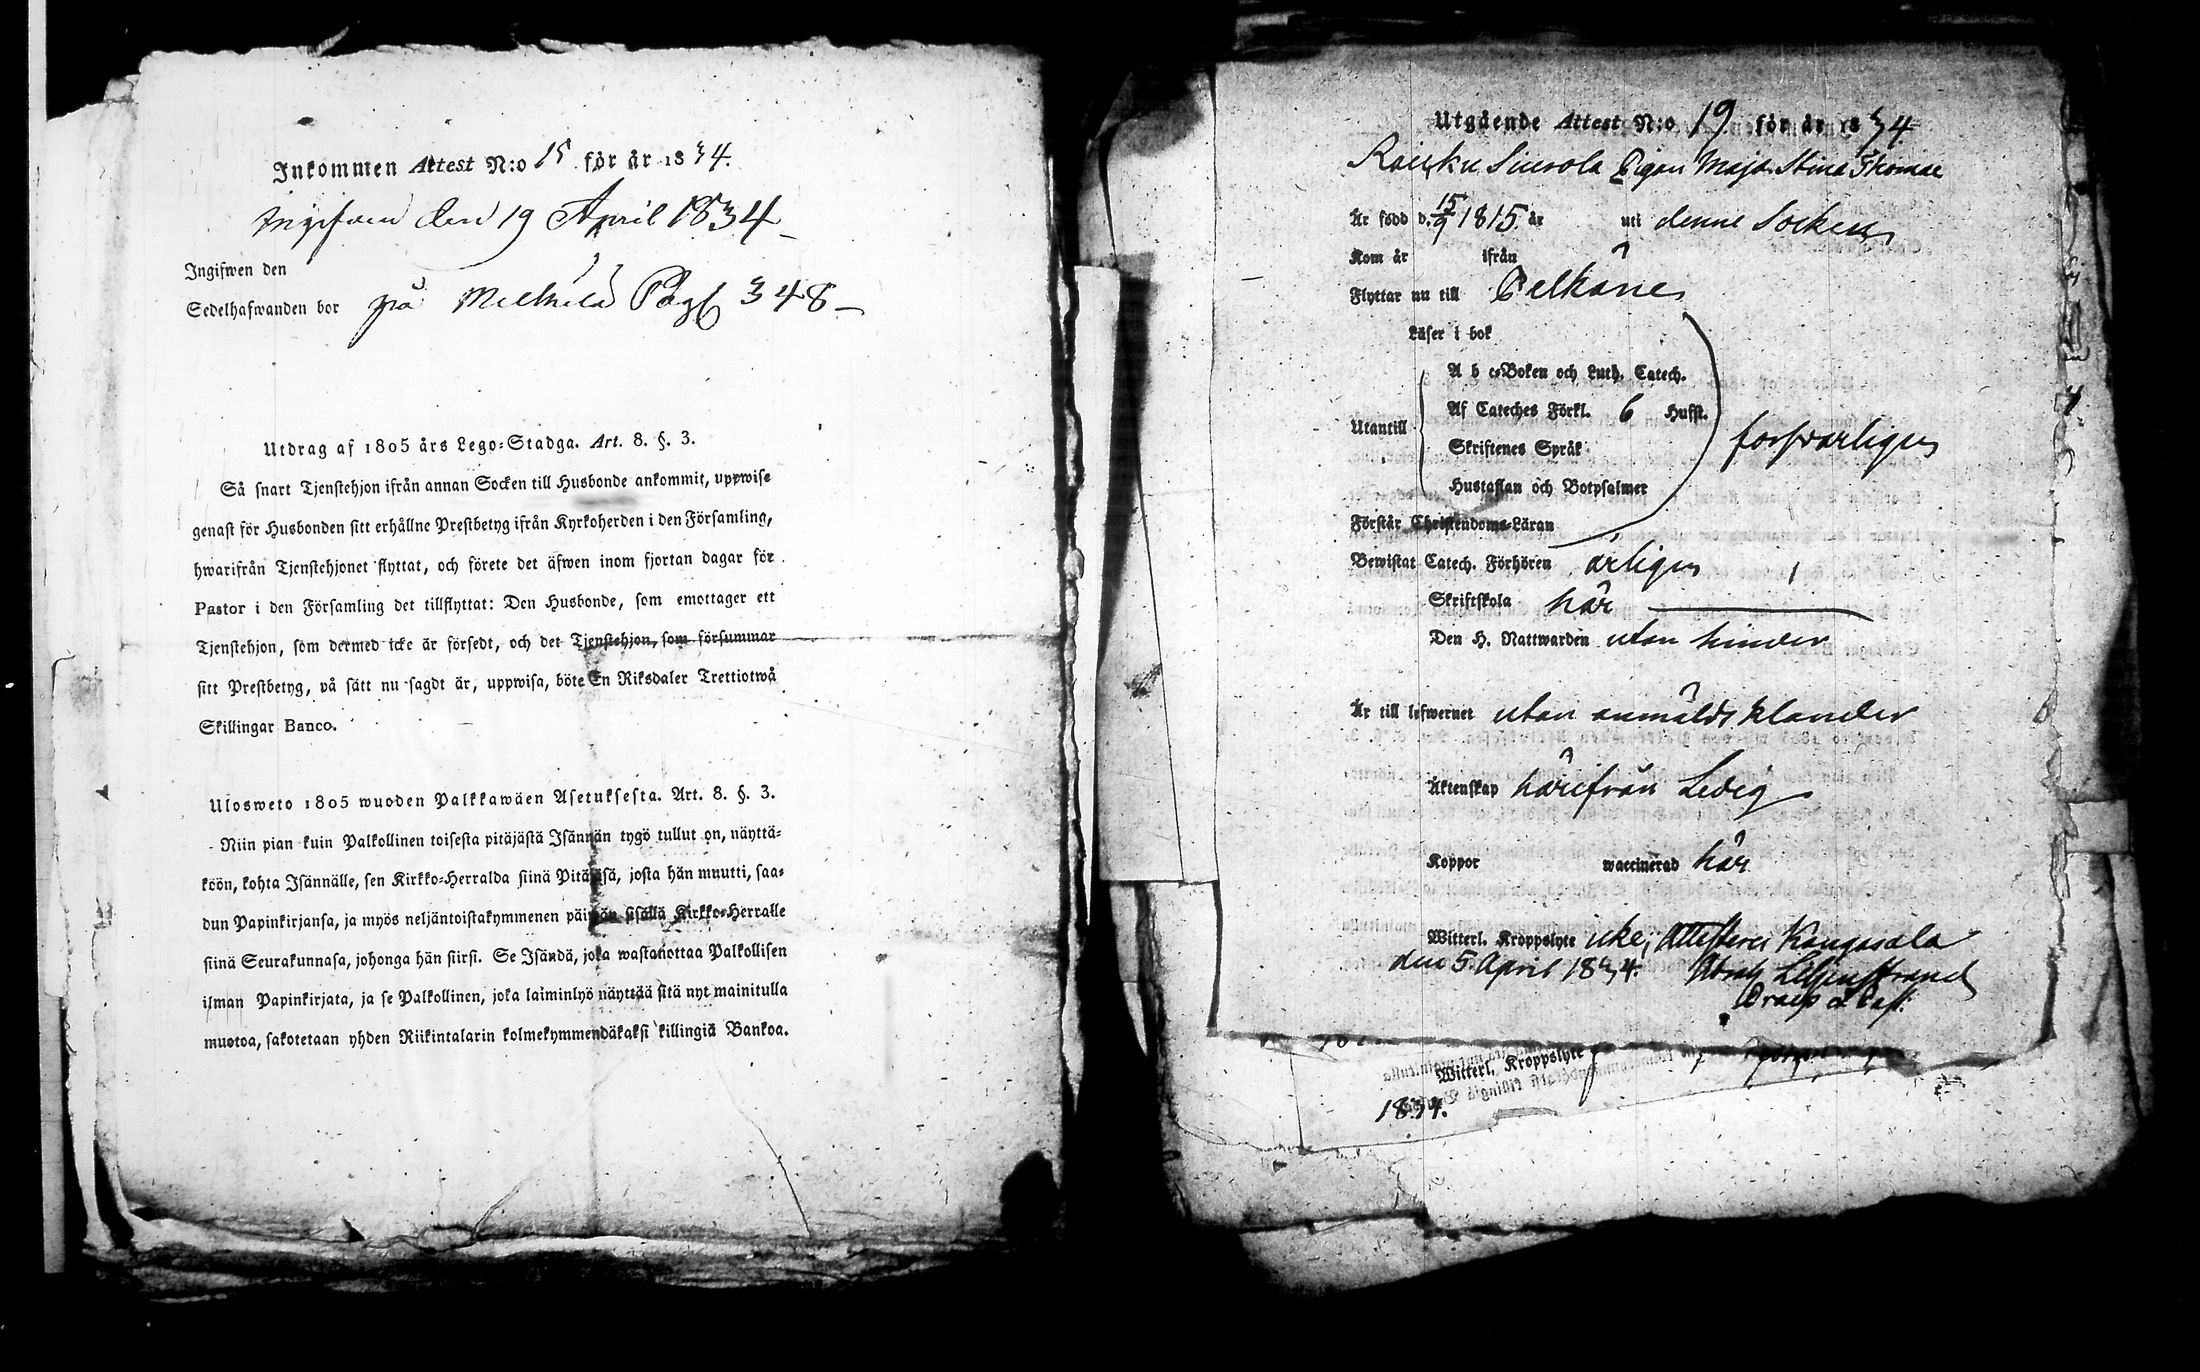 Inkommen Attest N:o 15 för år 1834.
Ingifven den 19 April 1834
Ingifwen den
Sedelhafwanden bor på Pag 348
Utdrag af 1805 års Lego-Stadga. Art. 8. §. 3.
Så snart Tjenstehjon ifrån annan Socken till Husbonde ankommit, uppwise
genast för Husbonden sitt erhållne Prestbetyg ifrån Kyrkoherden i den Församling,
hwarifrån Tjenstehjonet flyttat, och förete det äfwen inom fjortan dagar för
Pastor i den Församling det tillflyttat: Den Husbonde, som emottager ett
Tjenstehjon, som dermed icke är försedt, och det Tjenstehjon, som försummar
sitt Prestbetyg, på sätt nu sagdt är, uppwisa, böte En Riksdaler Trettiotwå
Skillingar Banco.
Ulosweto 1805 wuoden Palkkawäen Asetuksesta. Art. 8. §. 3.
Niin pian kuin Palkollinen toisesta pitäjästä Isännän tygö tullut on, näyttä-
köön, kohta Isännälle, sen Kirkko-Herralda siinä Pitäjäsä, josta hän muutti, saa-
dun Papinkirjansa, ja myös neljäntoistakymmenen päiwän sisällä Kirkko-Herralle
siinä Seurakunnasa, johonga hän siirsi. Se Isändä, joka wastanottaa Palkollisen
ilman Papinkirjata, ja se Palkollinen, joka laiminlyö näyttää sitä nyt mainitulla
muotoa, sakotetaan yhden Riikintalarin kolmekymmendäkaksi killingiä Bankoa.
Utgående Attest N:o 19 för år 1834.
Raikku Siuvola Pigan Maja Stina Thomae
Är född d. 15/9 1815 år uti denne Socken
Kom år ifrån
Flyttar nu till Pelkäne
Läser i bok
A b c-Boken och Luth. Catech.
Af Cateches Förkl. 6 Hufst.
Utantill
Skriftenes Språk
försvarligen
Hustaflan och Botpsalmer
Förstår Christendoms-Läran
Bewistat Catech. Förhören årligen
Skriftskola här
Den H. Nattwarden utan hinder
Är till lefwernet utan anmäldt klander
Äktenskap härifrån Ledig
Koppor waccinerad här
Witterl. Kroppslyte icke, Attesterar Kangasala
den 5 April 1834.
Witterl. Kroppslyte
1834.